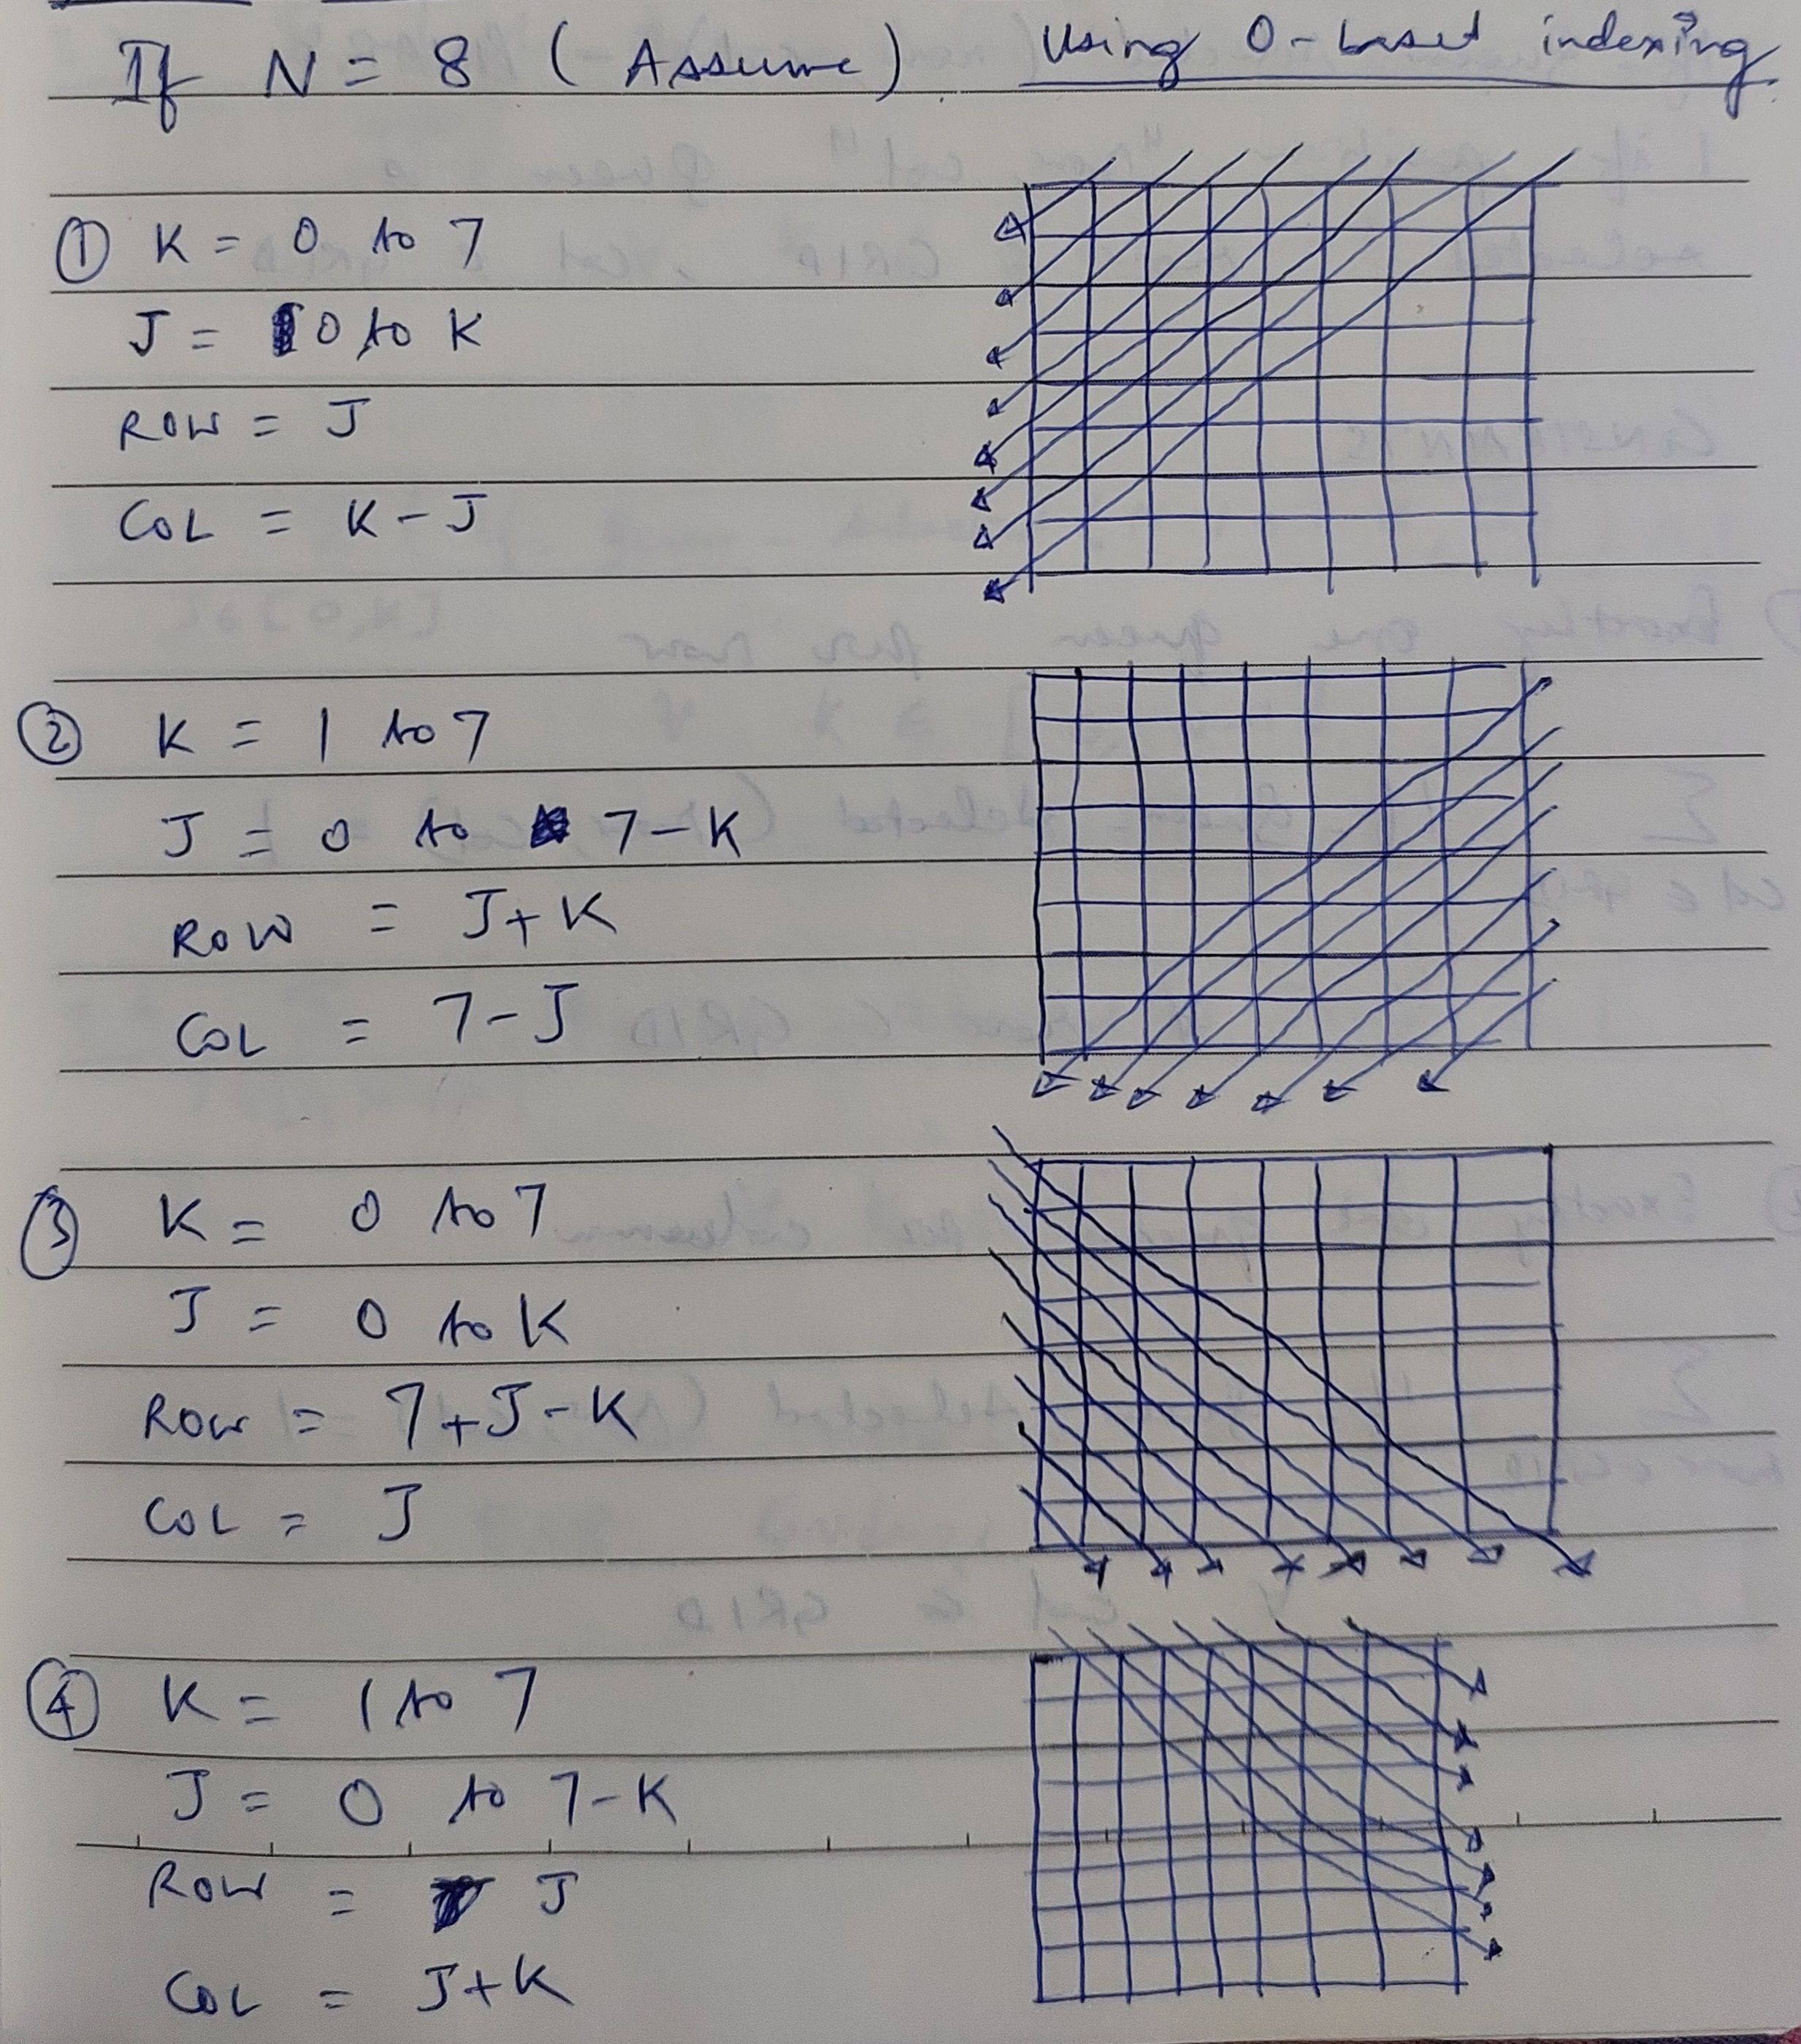 If N = 8 (Assume) Using 0-based indexing
① K = 0 to 7
J = 0 to K
ROW = J
COL = K - J
② K = 1 to 7
J = 0 to 7-K
ROW = J+K
COL = 7-J
③ K = 0 to 7
J = 0 to K
ROW = 7+J-K
COL = J
④ K = 1 to 7
J = 0 to 7-K
ROW = J
COL = J+K